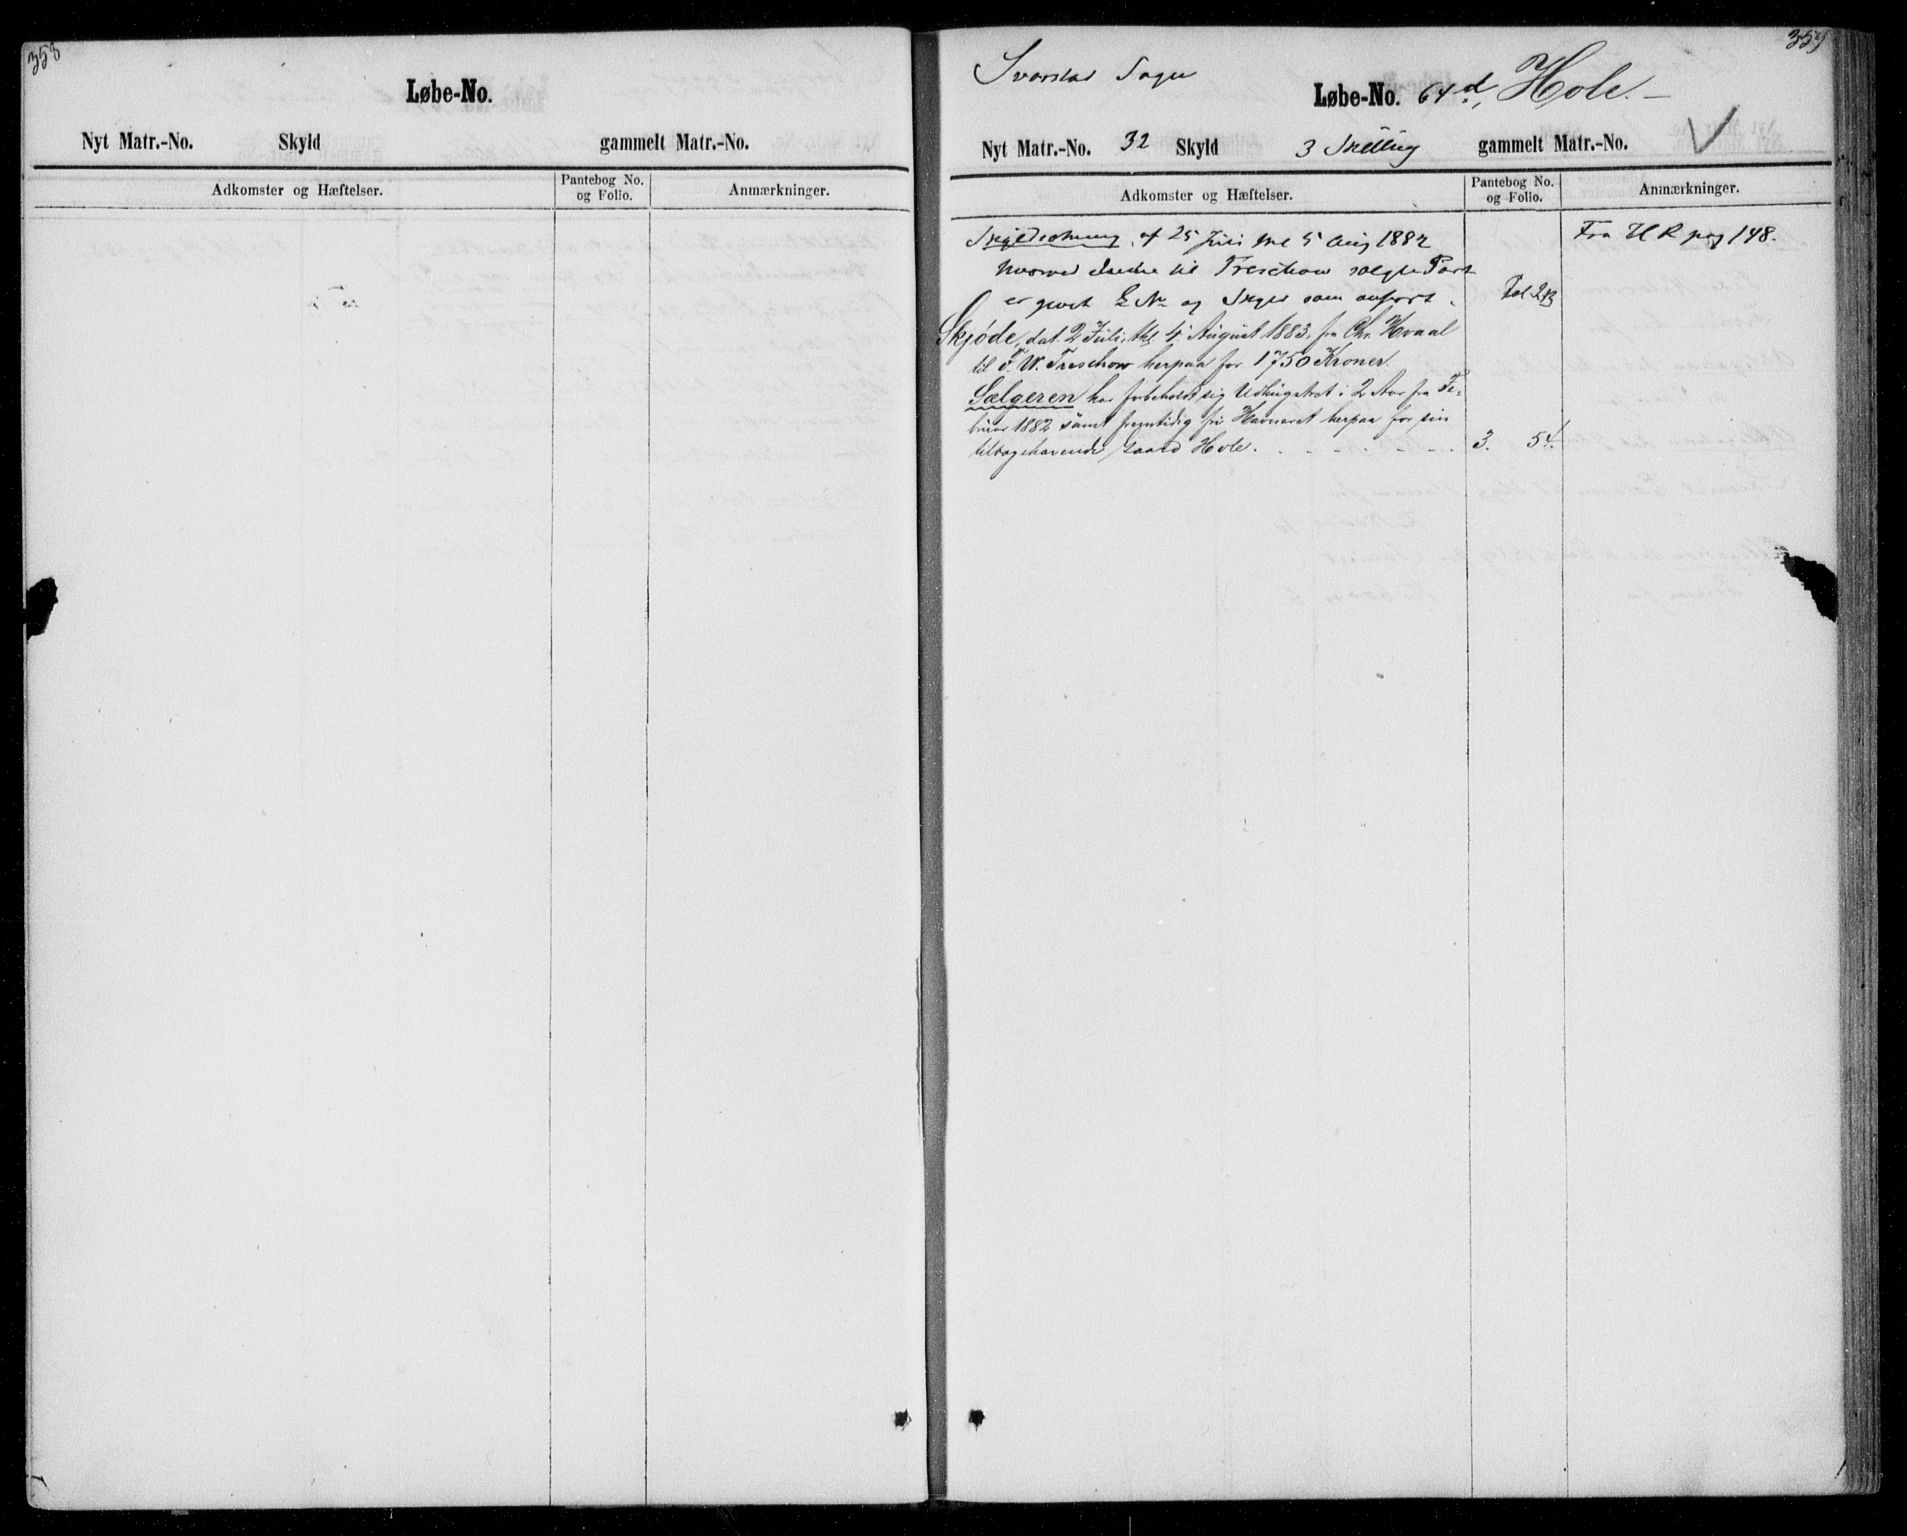 358
Løbe-No.
Nyt Matr.-No. Skyld gammelt Matr.-No.
Adkomster og Hæftelser.
Pantebog No.
og Folio.
Anmærkninger.
359
Svarstad Sogn
Løbe-No. 64d, Hole. —
Nyt Matr.-No. 32 Skyld 3 Skilling gammelt Matr.-No.
Adkomster og Hæftelser.
Pantebog No.
og Folio.
Anmærkninger.
af 25 Juli thl 5 Aug 1882
Fra H R pag 148.
hvorved til Treschow solgte Part
er givet L No og som anført. Fol
Skjøde, dat. 2 Juli, thl. 4. August 1883, fra Chr. Hvaal
til F. W. Treschow herpaa for 1750 Kroner.
Sælgeren har forbeholdt sig Udhugstret i 2 Aar fra Fe-
bruar 1882 samt fremtidig fri Havneret herpaa for sin
tilbagehavende Gaard Hole. 3. 54.